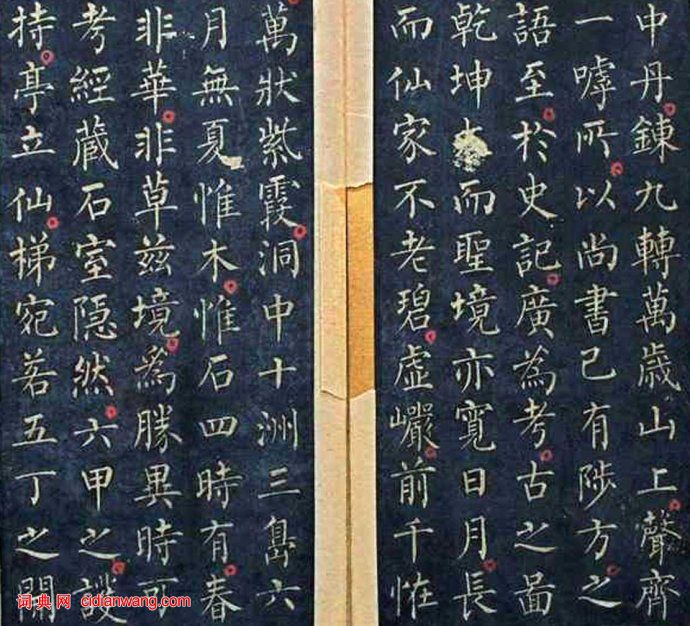 中丹鍊九轉萬歲山上聲齊
一嘑所以尚書已有陟方之
語至於史記廣為考古之啚
乾坤大而聖境亦寬日月長
而仙家不老碧虛巗前千恠
萬狀紫霞洞中十洲三島六
月無夏惟木惟石四時有春
非華非草茲境爲勝異時可
考經藏石室隱然六甲之護
持亭立仙梯宛若五丁之開
词典网 cidianwang.com